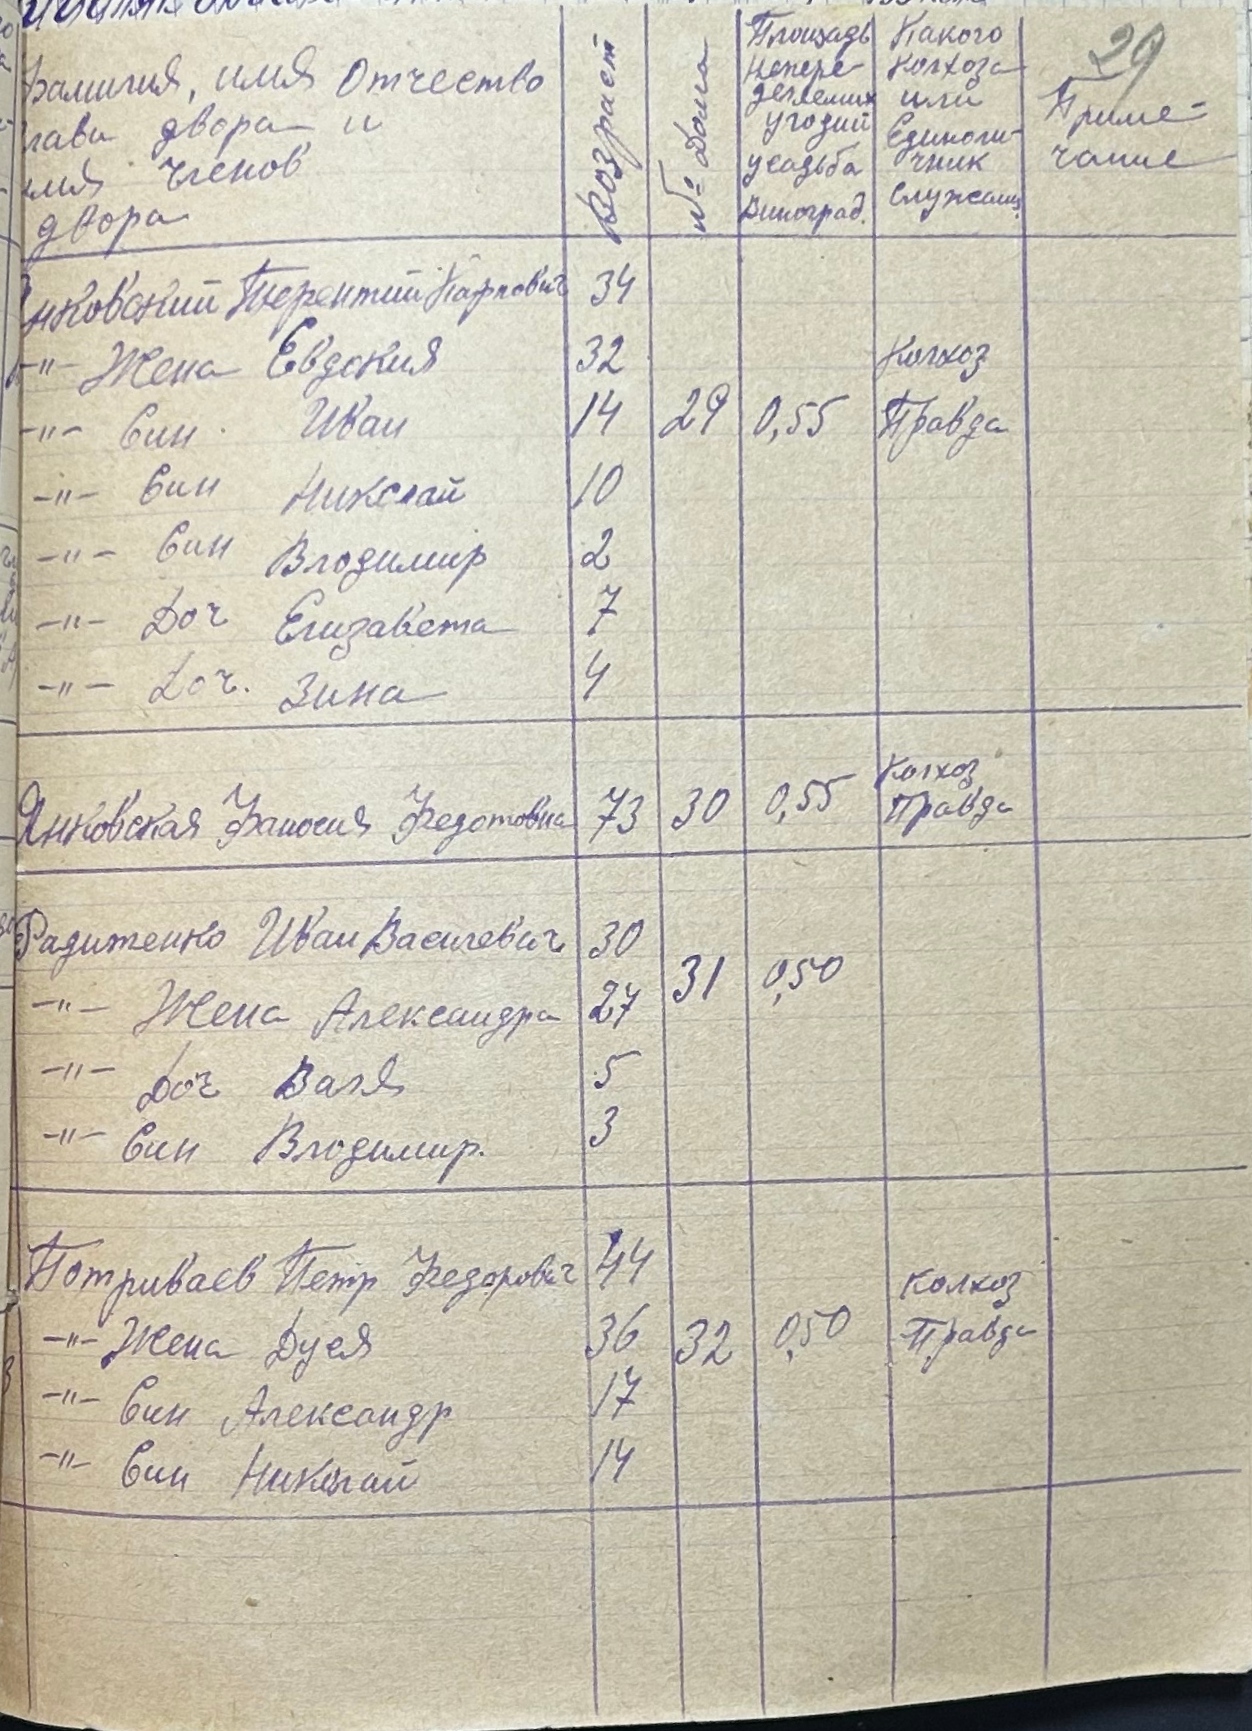 29
Фамилия, имя Отчество
глави двора и
имя членов
двора
Возраст
№ Дома
Площадь
непере
делемих
угодий
усадьба
Виноград.
Какого
Колхоза
или
Единоли-
чник
Служащ.
Приме-
чание
Янковский Терентий Карпович 34
-"- Жена Евдокия 32 Колхоз
-"- Син Иван 14 29 0,55 Правда
-"- Син Николай 10
-"- Син Владимир 2
-"- Доч Елизавета 7
-"- Доч. Зина 4
Колхоз
Янковская Федотовна 73 30 0,55 Правда
Иван Василевич 30
-"- Жена Александра 27 31 0,50
-"- Доч Валя 5
-"- Син Владимир. 3
Потриваев Петр Федорович 44 Колхоз
-"- Жена Дуся 36 32 0,50 Правда
-"- Син Александр 17
-"- Син Николай 14